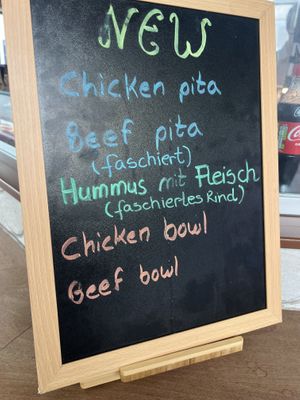 NEW
Chicken pita
Beef pita
(faschiert)
Hummus mit Fleisch
(faschiertes Rind)
Chicken bowl
Beef bowl